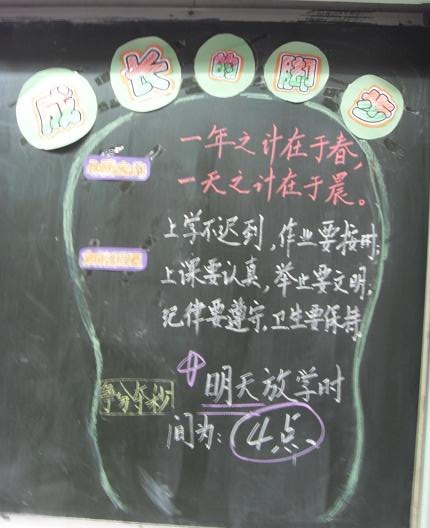 成长的脚步
一年之计在于春,
一天之计在于晨。
上学不迟到,作业要按时;
上课要认真,举止要文明;
纪律要遵守,卫生要保持
争分夺秒
明天放学时
间为:4点